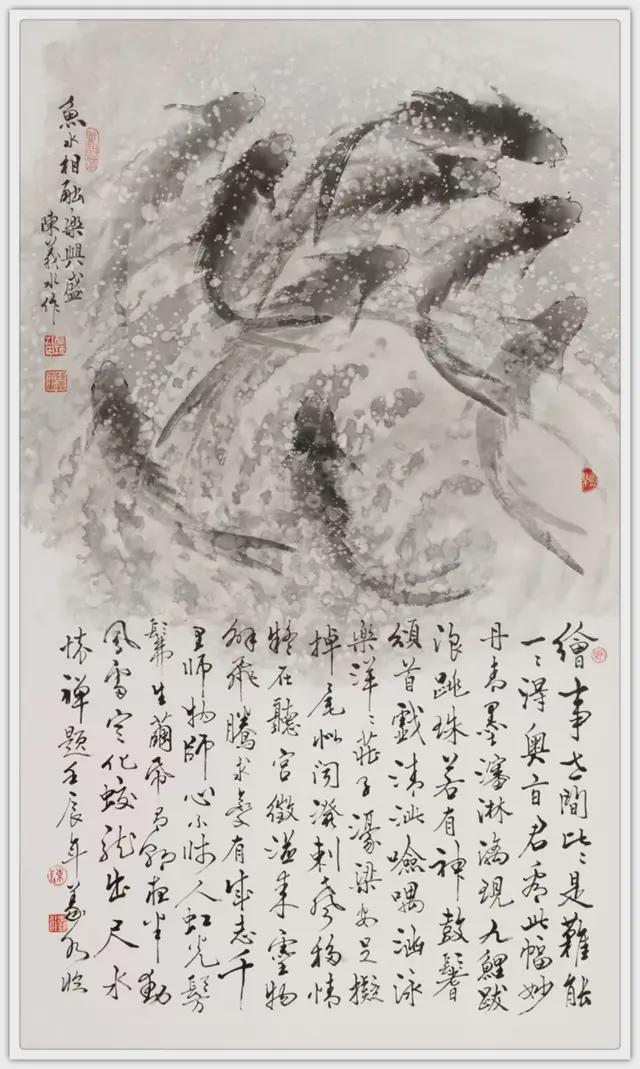 魚水相融樂興盛
陳義水作
繪事世間比比是難能
一一得奧旨君看此幅妙
丹青墨瀋淋漓現九鯉跋
浪跳珠若有神鼓鬐
頒首戲清泚噞喁涵泳
樂洋洋莊子濠梁安足擬
掉尾似聞潑剌聲移情
疑在聽宮徵溢來靈物
解飛騰求變有成志千
里師物師心不昧人虹光鬐
鬣生繭帋夜半動
風雷定化蛟龍出尺水
禪題壬辰年義水